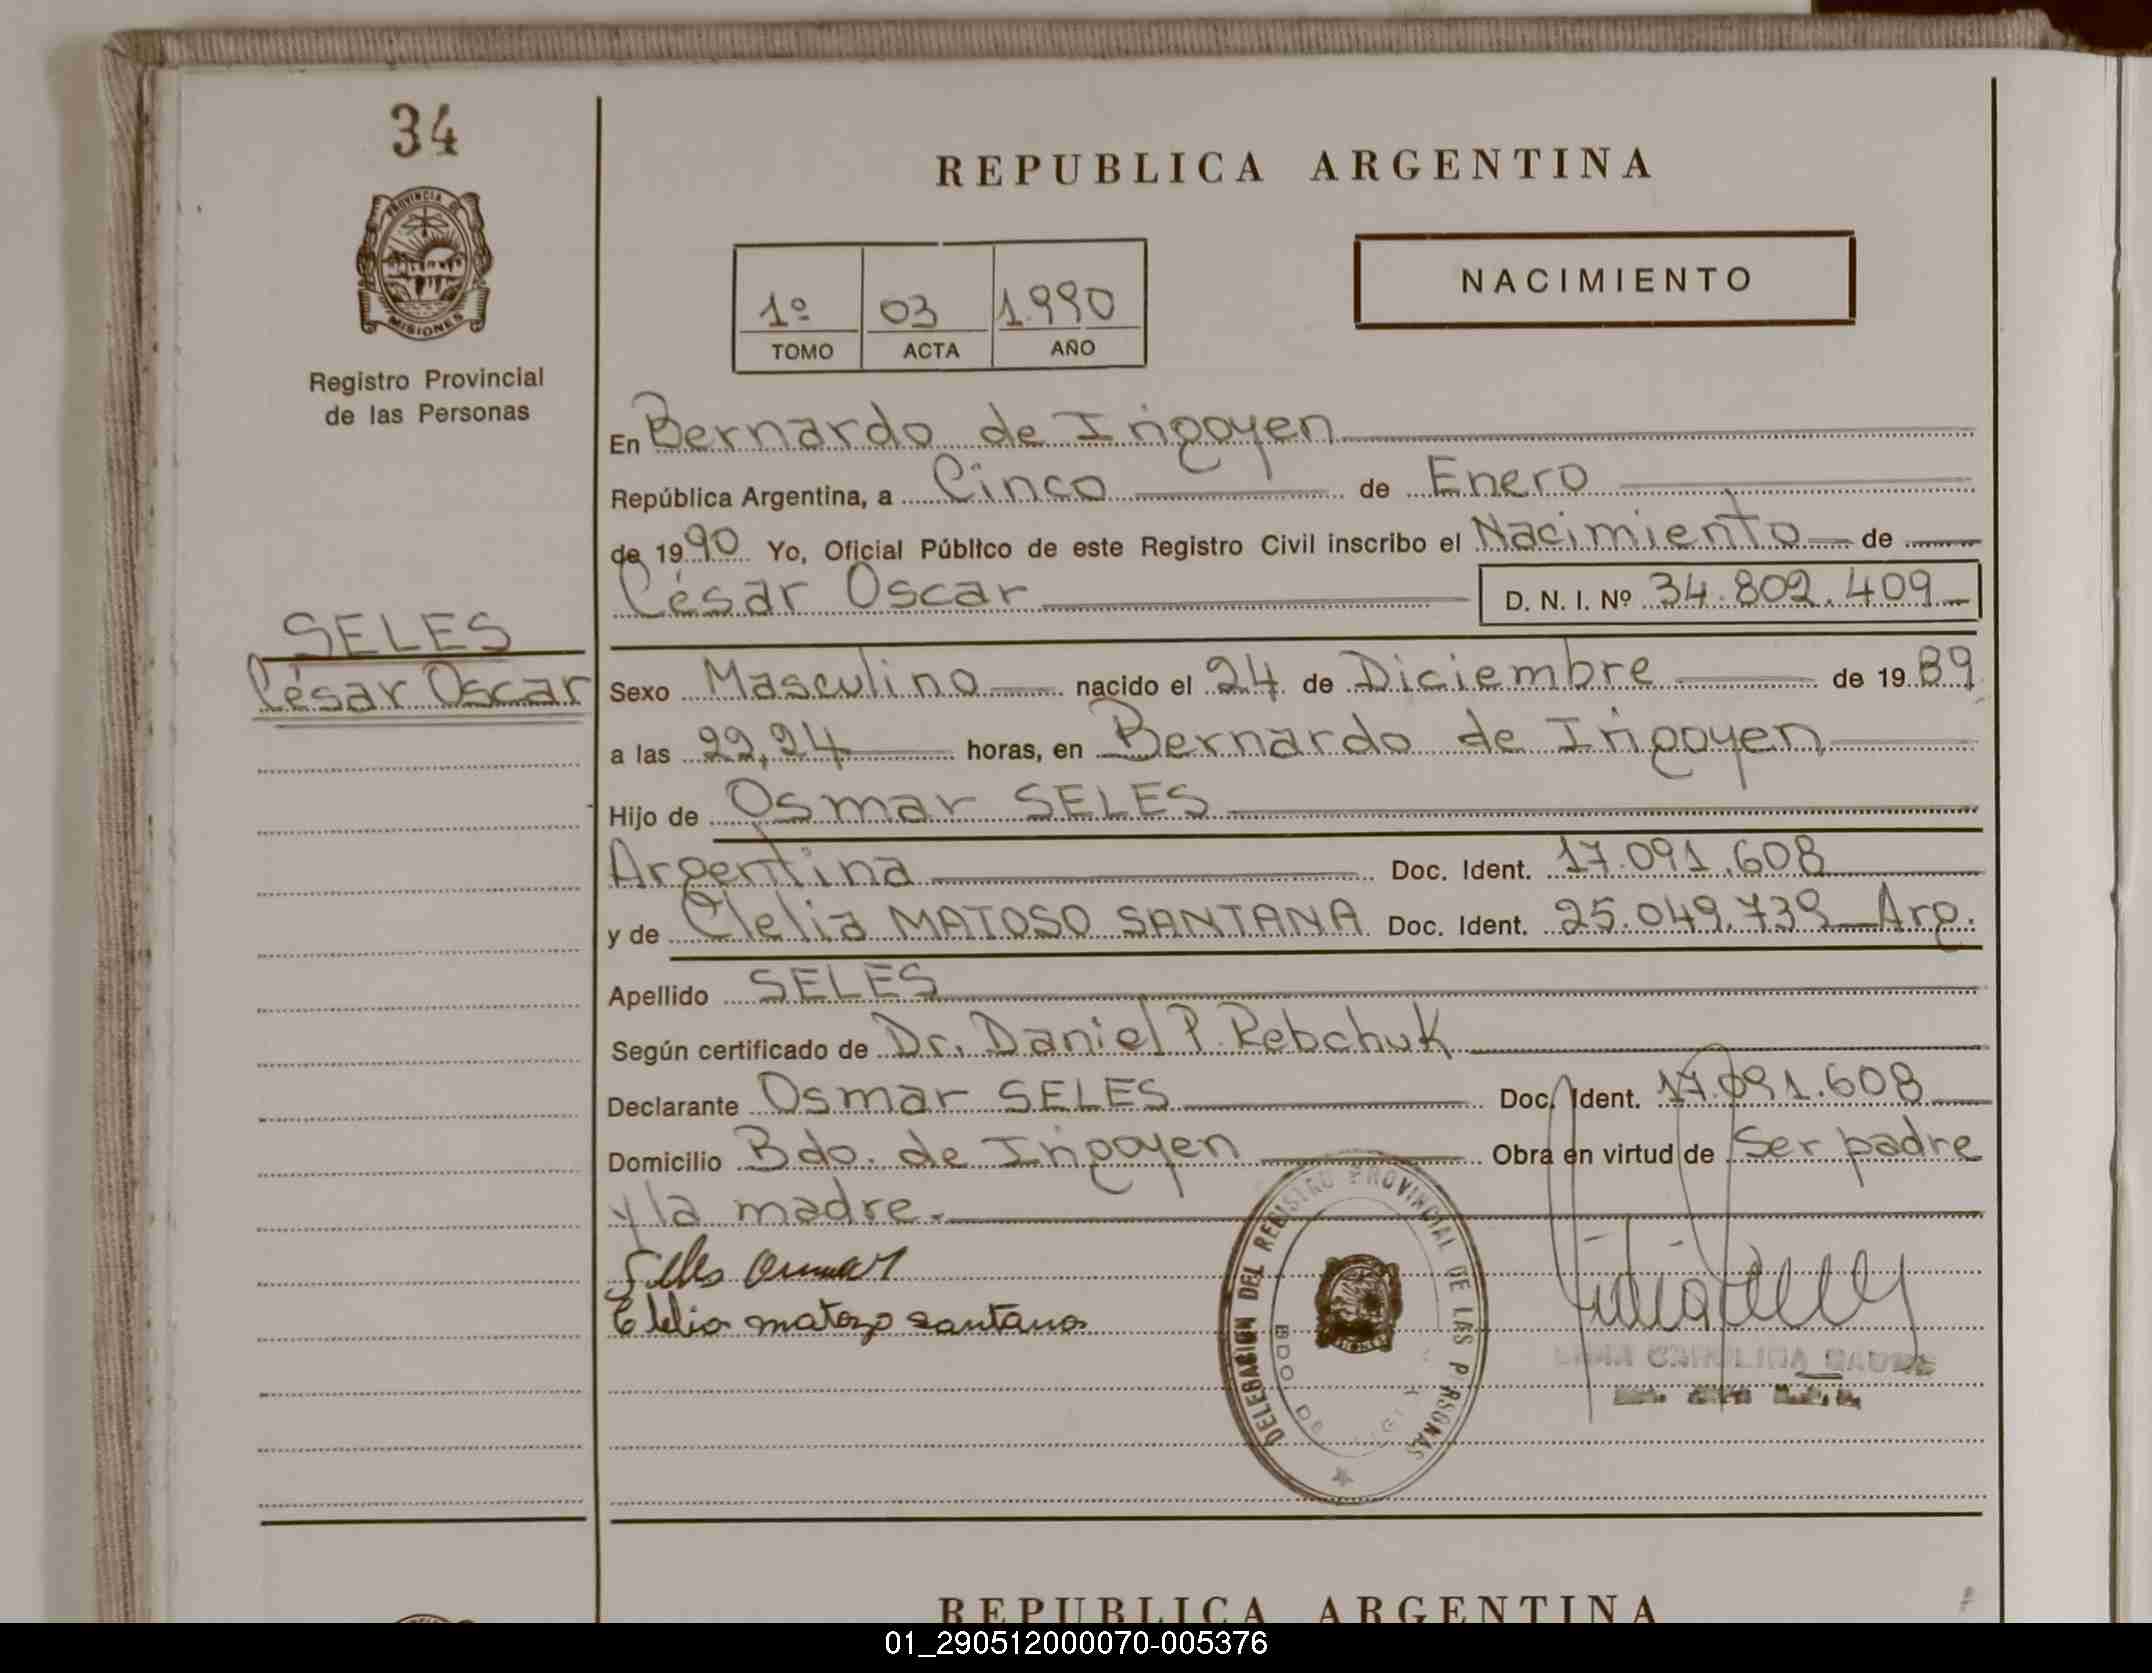 34
PROVINCIA DE
MISIONES
Registro Provincial
de las Personas
REPUBLICA ARGENTINA
NACIMIENTO
1º 03 1.990
TOMO ACTA AÑO
En Bernardo de Irigoyen
República Argentina, a Cinco de Enero
de 1990 Yo, Oficial Público de este Registro Civil inscribo el Nacimiento de
César Oscar D. N. I. Nº 34.802.409
SELES
César Oscar
Sexo Masculino nacido el 24 de Diciembre de 1989
a las 22,24 horas, en Bernardo de Irigoyen
Hijo de Osmar SELES
Argentina Doc. Ident. 17.091.608
y de Clelia MATOSO SANTANA Doc. Ident. 25.049.739 Arg.
Apellido SELES
Según certificado de Dr. Daniel P. Rebchuk
Declarante Osmar SELES Doc. Ident. 17.091.608
Domicilio Bdo. de Irigoyen Obra en virtud de Ser padre
y la madre.
Seles Osmar
Clelia matozo santana
DELEGACION DEL REGISTRO PROVINCIAL DE LAS PERSONAS
BDO DE
REPUBLICA ARGENTINA
01_290512000070-005376